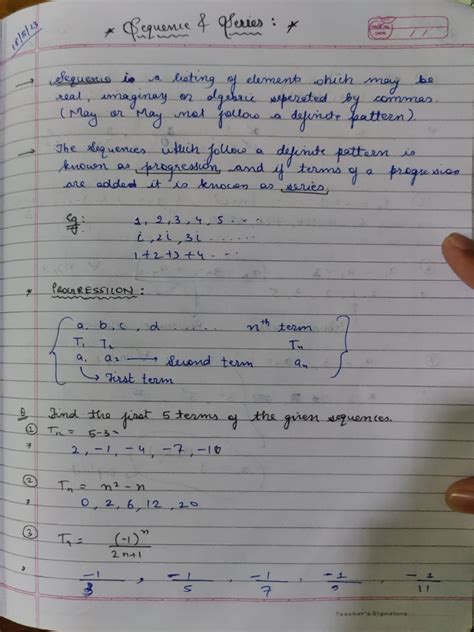 15/5/23
* Sequence & Series : *
PAGE NO.
DATE
→ Sequence is a listing of elements which may be
real, imaginary or algebric seperated by commas.
(May or May not follow a definite pattern).
→ The sequences which follow a definite pattern is
known as progression and if terms of a progression
are added it is known as series.
Eg: 1, 2, 3, 4, 5 ...
i, 2i, 3i ......
1+2+3+4 ...
* PROGRESSION :
a, b, c, d ..... nth term
T1 T2 Tn
a1 a2 → Second term an
↳ First term
Q Find the first 5 terms of the given sequences.
① Tn = 5-3
2, -1, -4, -7, -10
② Tn = n² - n
0, 2, 6, 12, 20
③ Tn = (-1)ⁿ
2n+1
-1/3, -1/5, -1/7, -1/9, -1/11
Teacher's Signature